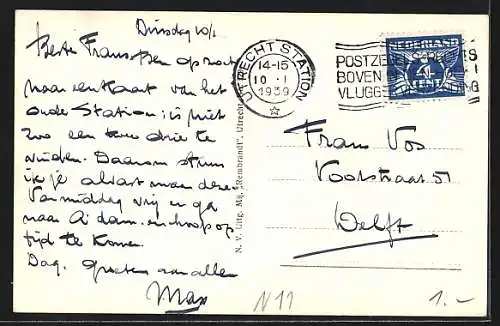 Dinsdag 10/1
Beste Frans, Ben op zoek
naar een kaart van het
oude Station: is niet
zoo een twee drie te
vinden. Daarom stuur
ik je alvast maar deze.
Vanmiddag vrij en ga
naar A'dam. en hoop op
tijd te komen.
Dag. groeten aan allen
Max
N. V. Uitg. Mij. "Rembrandt", Utrecht
UTRECHT STATION
14-15
10. I
1939
POSTZEGEL RECHTS
BOVEN
VLUGGE
NEDERLAND
CENT
Frans Vos
Voorstraat 51
Delft
N11
1.-